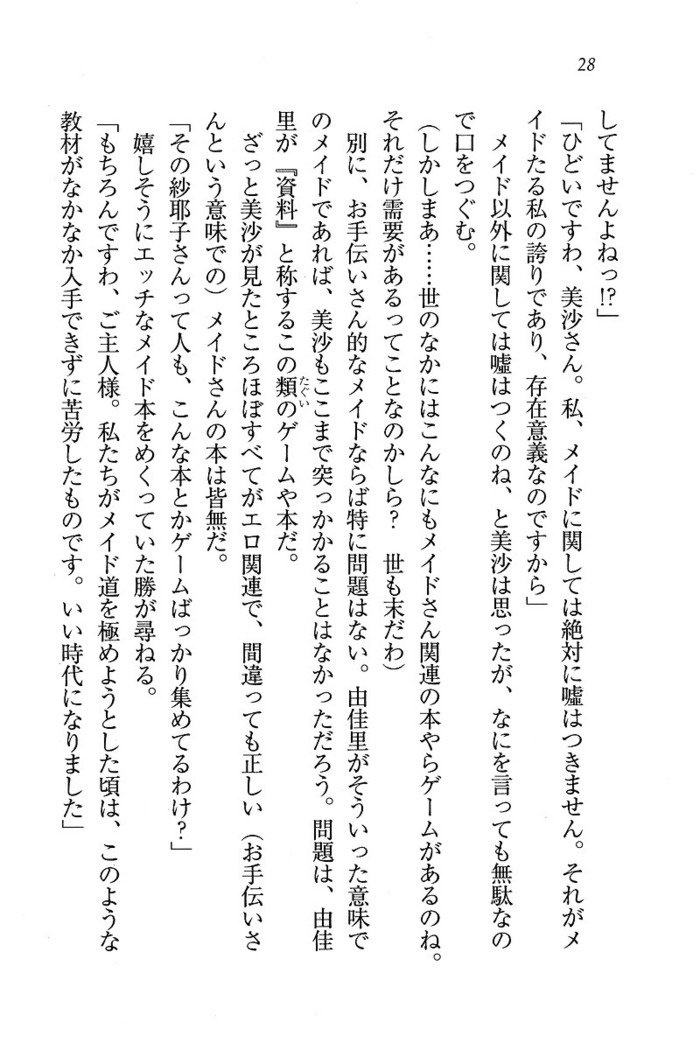 28
してませんよねっ!?」
「ひどいですわ、美沙さん。私、メイドに関しては絶対に嘘はつきません。それがメ
イドたる私の誇りであり、存在意義なのですから」
メイド以外に関しては嘘はつくのね、と美沙は思ったが、なにを言っても無駄なの
で口をつぐむ。
(しかしまあ……世のなかにはこんなにもメイドさん関連の本やらゲームがあるのね。
それだけ需要があるってことなのかしら? 世も末だわ)
別に、お手伝いさん的なメイドならば特に問題はない。由佳里がそういった意味で
のメイドであれば、美沙もここまで突っかかることはなかっただろう。問題は、由佳
里が『資料』と称するこの類のゲームや本だ。
たぐい
ざっと美沙が見たところほぼすべてがエロ関連で、間違っても正しい(お手伝いさ
んという意味での)メイドさんの本は皆無だ。
「その紗耶子さんって人も、こんな本とかゲームばっかり集めてるわけ?」
嬉しそうにエッチなメイド本をめくっていた勝が尋ねる。
「もちろんですわ、ご主人様。私たちがメイド道を極めようとした頃は、このような
教材がなかなか入手できずに苦労したものです。いい時代になりました」